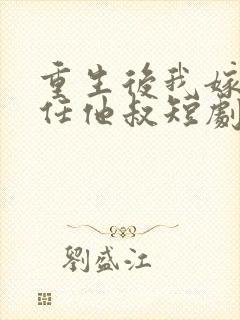 重生後我嫁
任他叔短劇
劉盛江